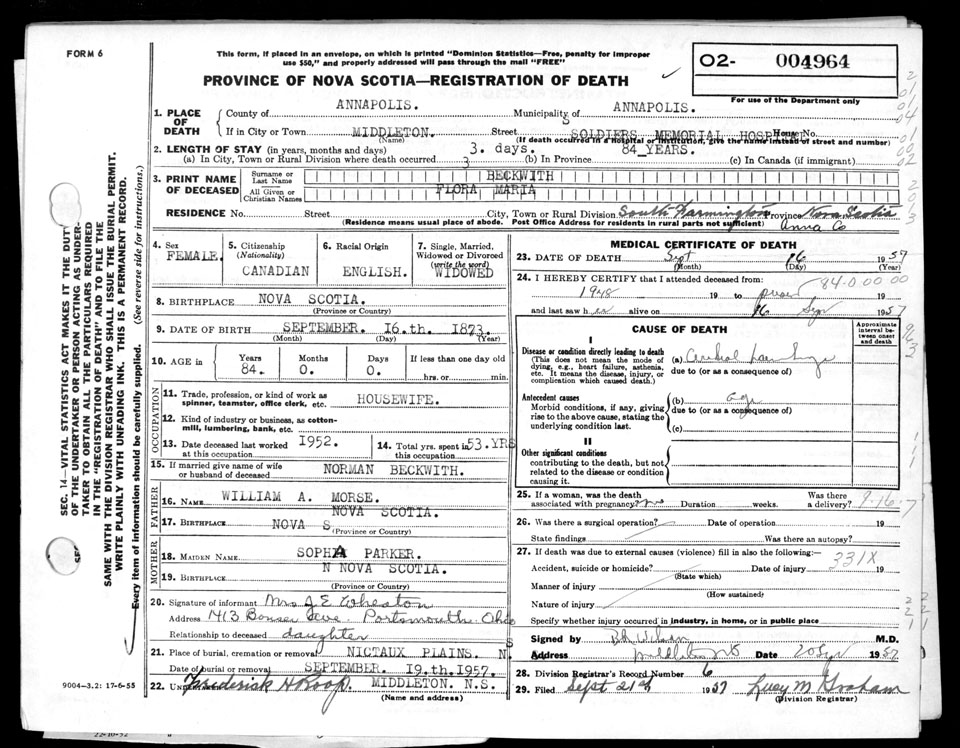 FORM 6
This form, if placed in an envelope, on which is printed "Dominion Statistics—Free, penalty for improper
use $50," and properly addressed will pass through the mail "FREE"
PROVINCE OF NOVA SCOTIA—REGISTRATION OF DEATH
O2- 004964
For use of the Department only
SEC. 14—VITAL STATISTICS ACT MAKES IT THE DUTY
OF THE UNDERTAKER OR PERSON ACTING AS UNDER-
TAKER TO OBTAIN ALL THE PARTICULARS REQUIRED
IN THE "REGISTRATION OF DEATH" AND TO FILE THE
SAME WITH THE DIVISION REGISTRAR WHO SHALL ISSUE THE BURIAL PERMIT.
WRITE PLAINLY WITH UNFADING INK. THIS IS A PERMANENT RECORD.
Every item of information should be carefully supplied. (See reverse side for instructions.)
1. PLACE OF DEATH
County of ANNAPOLIS. Municipality ANNAPOLIS.
S
If in City or Town MIDDLETON. Street SOLDIERS MEMORIAL HOSPITAL House No.
(Name) (If death occurred in a hospital or institution, give the name instead of street and number)
2. LENGTH OF STAY (in years, months and days) 3. days. 84 YEARS.
(a) In City, Town or Rural Division where death occurred 3 (b) In Province (c) In Canada (if immigrant)
3. PRINT NAME OF DECEASED
Surname or Last Name BECKWITH
All Given or Christian Names FLORA MARIA
RESIDENCE No. Street City, Town or Rural Division South Farmington Province Nova Scotia
(Residence means usual place of abode. Post Office Address for residents in rural parts not sufficient) Anna Co
4. Sex FEMALE.
5. Citizenship (Nationality) CANADIAN
6. Racial Origin ENGLISH.
7. Single, Married, Widowed or Divorced (write the word) WIDOWED
8. BIRTHPLACE NOVA SCOTIA.
(Province or Country)
9. DATE OF BIRTH SEPTEMBER. 16.th. 1873.
(Month) (Day) (Year)
10. AGE IN Years 84. Months 0. Days 0. If less than one day old hrs. or min.
OCCUPATION
11. Trade, profession, or kind of work as spinner, teamster, office clerk, etc. HOUSEWIFE.
12. Kind of industry or business, as cotton-mill, lumbering, bank, etc.
13. Date deceased last worked at this occupation 1952.
14. Total yrs. spent in this occupation 53. YRS
15. If married give name of wife or husband of deceased NORMAN BECKWITH.
FATHER
16. NAME WILLIAM A. MORSE.
NOVA SCOTIA.
17. BIRTHPLACE NOVA S
(Province or Country)
MOTHER
18. MAIDEN NAME SOPHA PARKER.
19. BIRTHPLACE N NOVA SCOTIA.
(Province or Country)
20. Signature of informant Mrs J. E. Wheaton
Address 1413 Bonser Ave. Portsmouth, Ohio
Relationship to deceased daughter
21. Place of burial, cremation or removal NICTAUX PLAINS. N.S
Date of burial or removal SEPTEMBER. 19.th.1957.
22. Frederick H Roop. MIDDLETON. N.S.
(Name and address)
9004—3.2: 17-6-55
MEDICAL CERTIFICATE OF DEATH
23. DATE OF DEATH Sept 16 1957
(Month) (Day) (Year)
24. I HEREBY CERTIFY that I attended deceased from: 84-0 00 00
1948 19 to 19
and last saw her alive on 16 1957
CAUSE OF DEATH
Approximate interval between onset and death
I
Disease or condition directly leading to death
(This does not mean the mode of dying, e.g., heart failure, asthenia, etc. It means the disease, injury, or complication which caused death.
(a) Cerebral
due to (or as a consequence of)
Antecedent causes
Morbid conditions, if any, giving rise to the above cause, stating the underlying condition last.
(b) age
due to (or as a consequence of)
(c)
II
Other significant conditions
contributing to the death, but not related to the disease or condition causing it.
25. If a woman, was the death associated with pregnancy? no Duration weeks. Was there a delivery? 9-16-7
26. Was there a surgical operation? Date of operation 19
State findings Was there an autopsy?
27. If death was due to external causes (violence) fill in also the following:—
331X
Accident, suicide or homicide? Date of injury 19
(State which)
Manner of injury
(How sustained)
Nature of injury
Specify whether injury occurred in industry, in home, or in public place
Signed by M.D.
Address Middleton NS Date 20 1957
28. Division Registrar's Record Number 6
29. Filed Sept 21st 1957 Lucy M Graham
(Division Registrar)